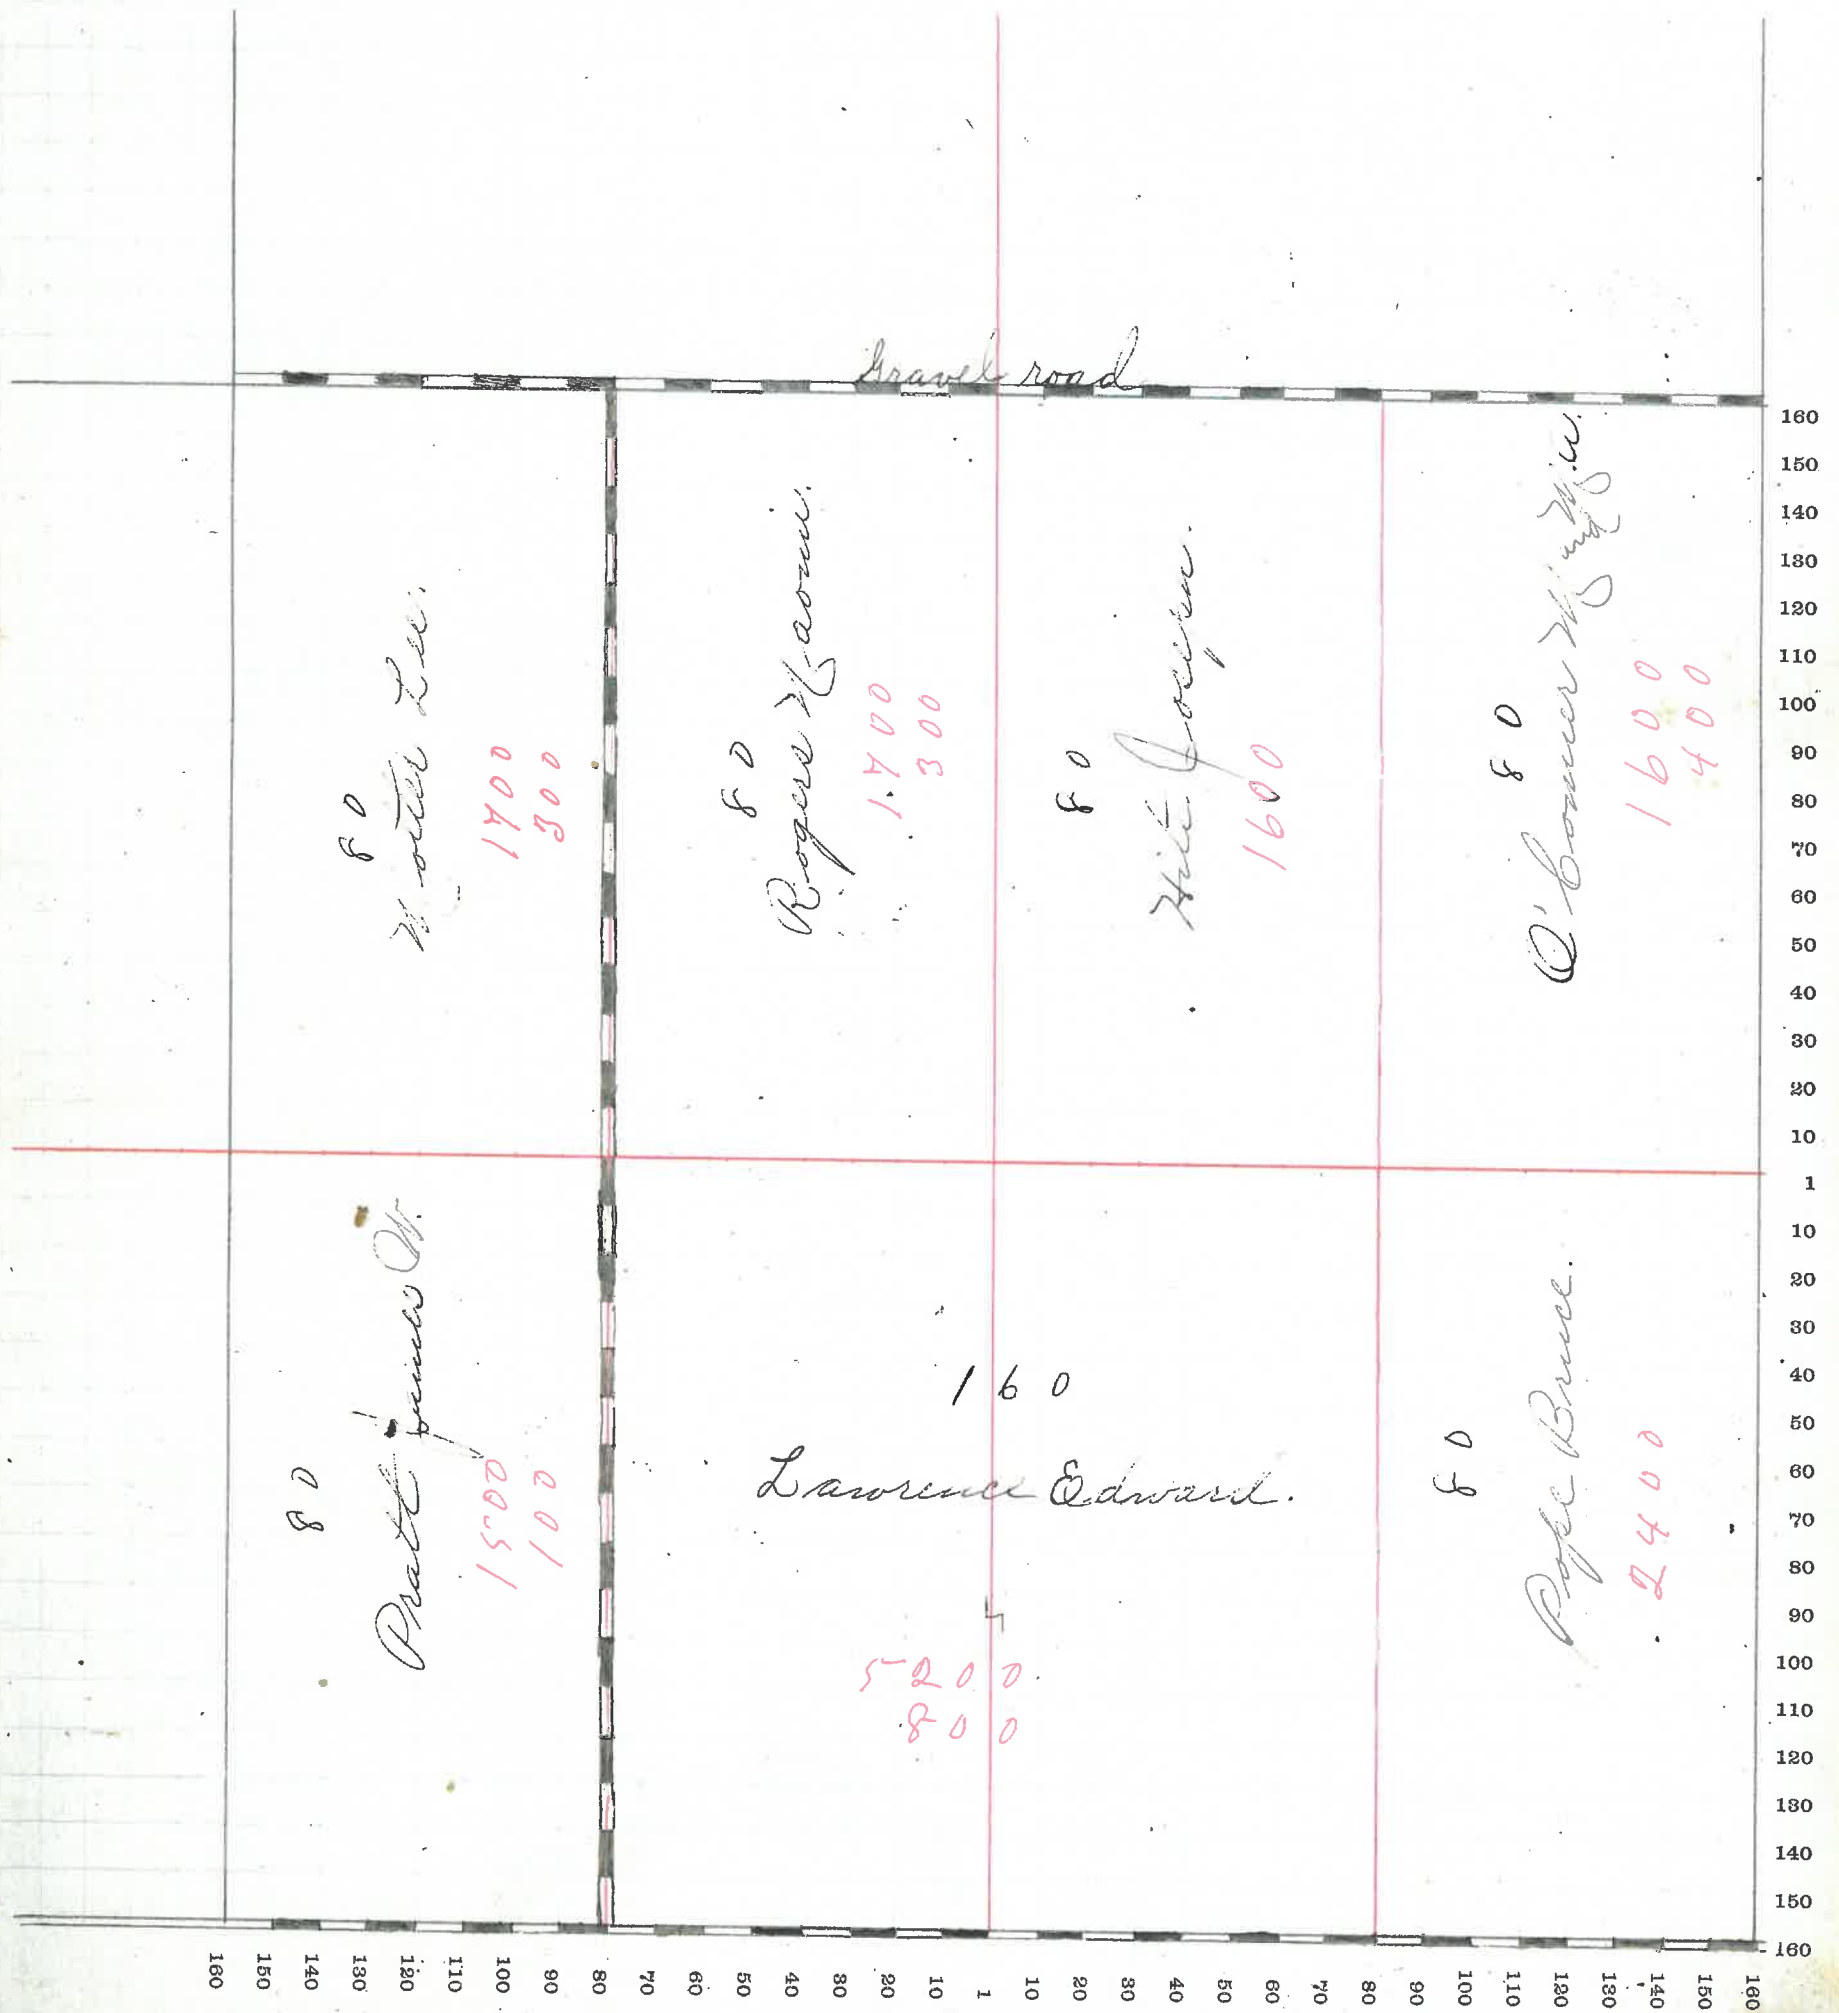 Gravel road
80
Lee.
1700
300
80
Rogers Naomi.
1700
300
80
1600
80
O'Conner
and
1600
400
80
Pratt James W.
1500
100
160
Lawrence Edward.
5200
800
80
Pope Bruce.
2400
160
150
140
130
120
110
100
90
80
70
60
50
40
30
20
10
1
10
20
30
40
50
60
70
80
90
100
110
120
130
140
150
160
160 150 140 130 120 110 100 90 80 70 60 50 40 30 20 10 1 10 20 30 40 50 60 70 80 90 100 110 120 130 140 150 160